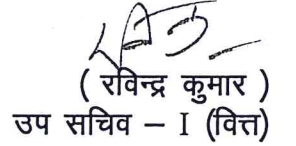 ( रविन्द्र कुमार )
उप सचिव – I (वित्त)